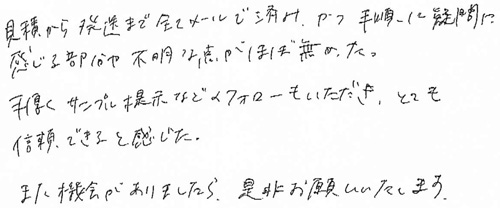 見積から発送まで全てメールで済み、かつ手順に疑問に
感じる部分や不明な点がほぼ無かった。
手厚くサンプル提示などのフォローもいただき、とても
信頼できると感じた。
また機会がありましたら、是非お願いいたします。